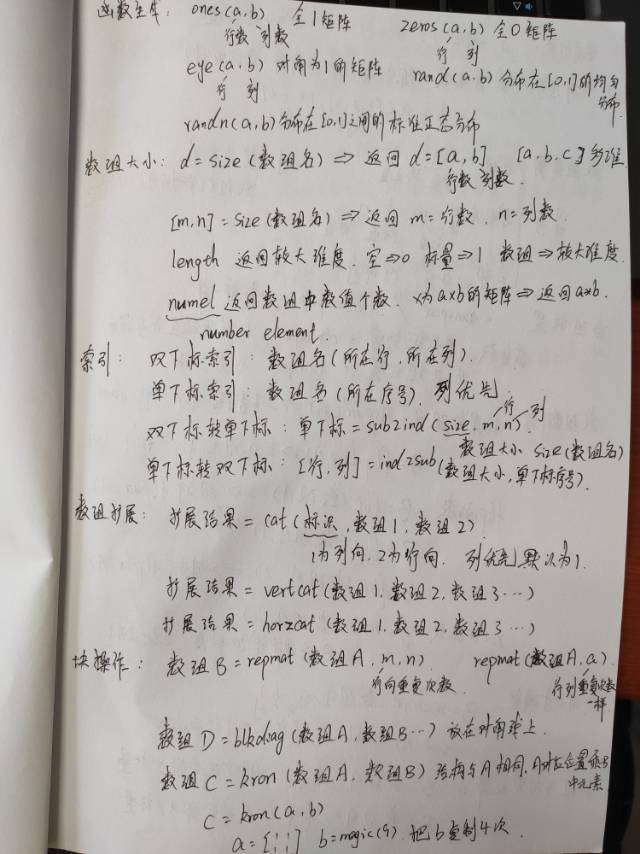 函数生成: ones(a,b) 全1矩阵 zeros(a,b) 全0矩阵
行数 列数 行 列
eye(a,b) 对角为1的矩阵 rand(a,b) 分布在[0,1]的均匀
行 列 分布.
randn(a,b) 分布在[0,1]之间的标准正态分布
数组大小: d=size(数组名) ⇒ 返回 d=[a,b] [a.b.c]多维
行数 列数.
[m,n]=size(数组名) ⇒ 返回 m=行数. n=列数.
length 返回较大维度. 空⇒0 标量⇒1 数组⇒较大维度.
numel 返回数组中数值个数. x为a×b的矩阵⇒返回a×b.
number element.
索引: 双下标索引: 数组名(所在行,所在列).
单下标索引: 数组名(所在序号). 列优先.
行 列
双下标转单下标: 单下标=sub2ind(size,m,n).
数组大小 size(数组名)
单下标转双下标: [行,列]=ind2sub(数组大小,单下标序号).
数组扩展: 扩展结果=cat(标识,数组1,数组2)
1为列向.2为行向. 列优先默认为1.
扩展结果=vertcat(数组1.数组2,数组3…)
扩展结果=horzcat(数组1,数组2,数组3…)
块操作: 数组B=repmat(数组A,m,n). repmat(数组A,a).
行向重复次数. 行列重复次数
一样
数组D=blkdiag(数组A,数组B…) 放在对角线上.
数组C=kron(数组A,数组B) 结构与A相同,A对应位置乘B
中元素.
C=kron(a,b)
b=magic(4). 把b复制4次.